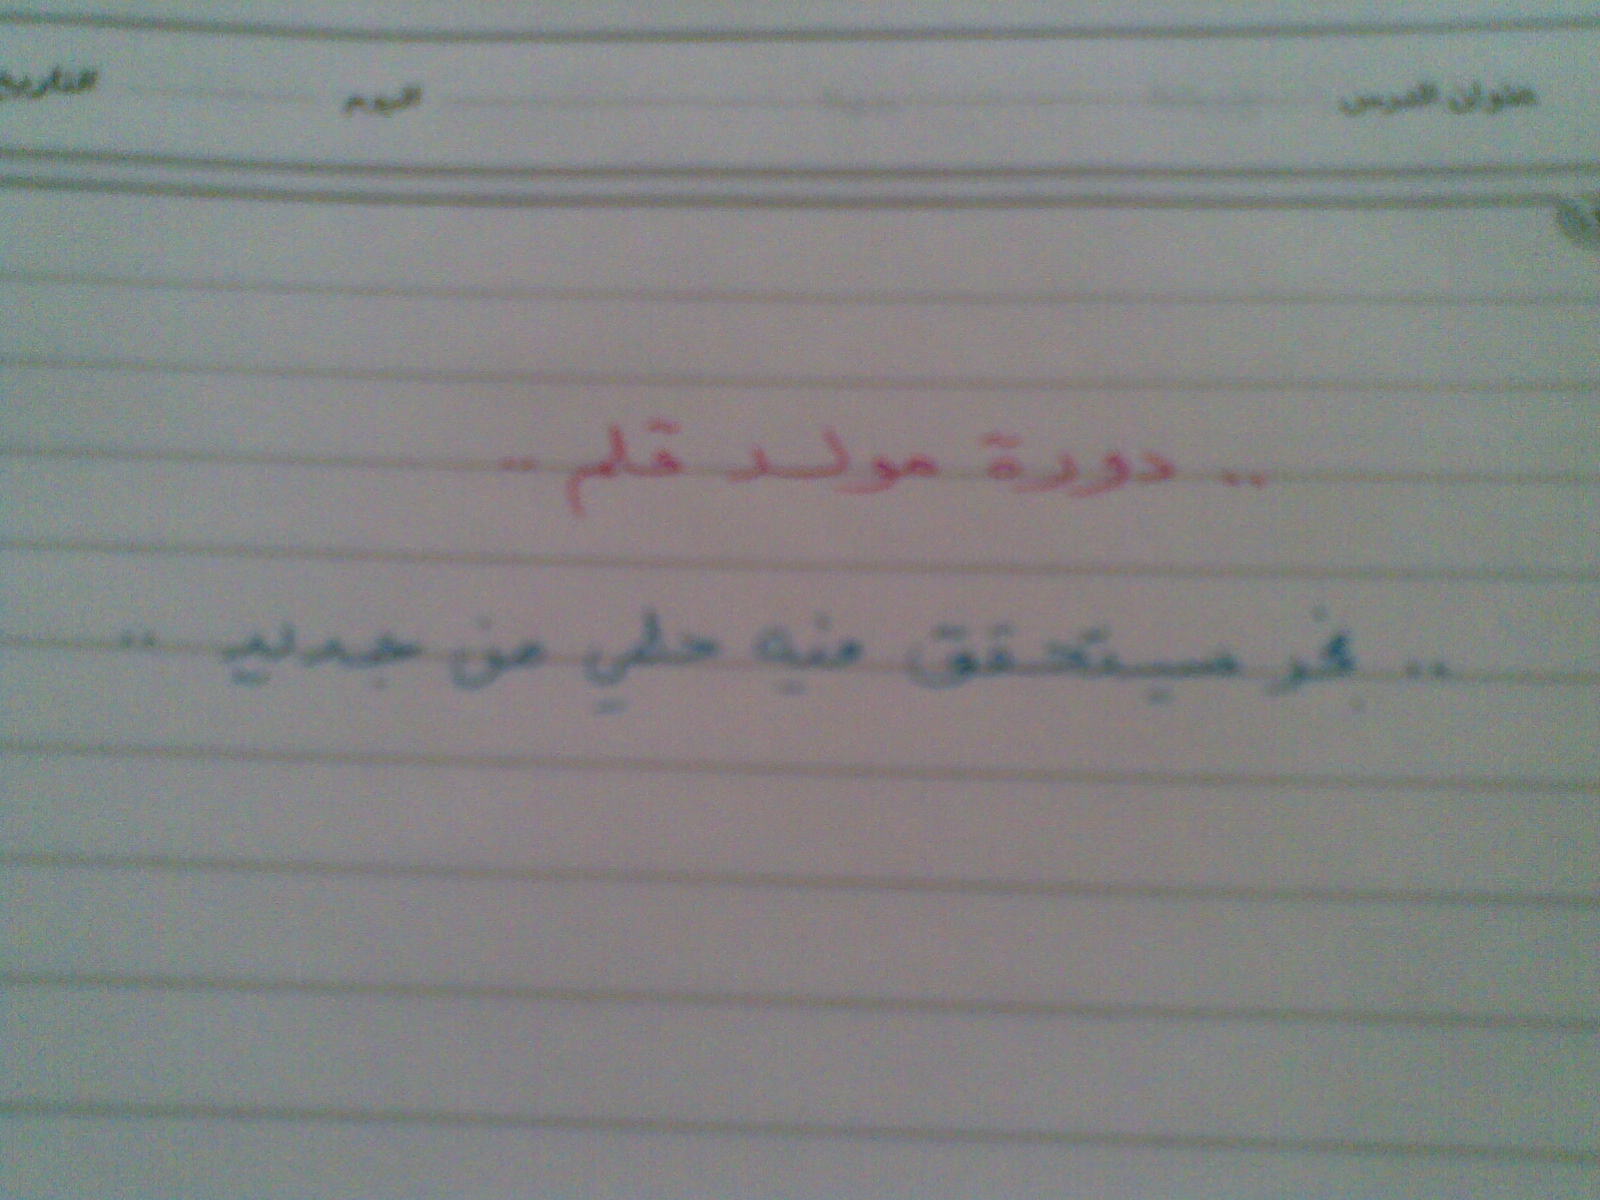 عنوان الدرس اليوم التاريخ
.. دورة مولد قلم ..
.. فجر سيتحقق منه حلمي من جديد ..